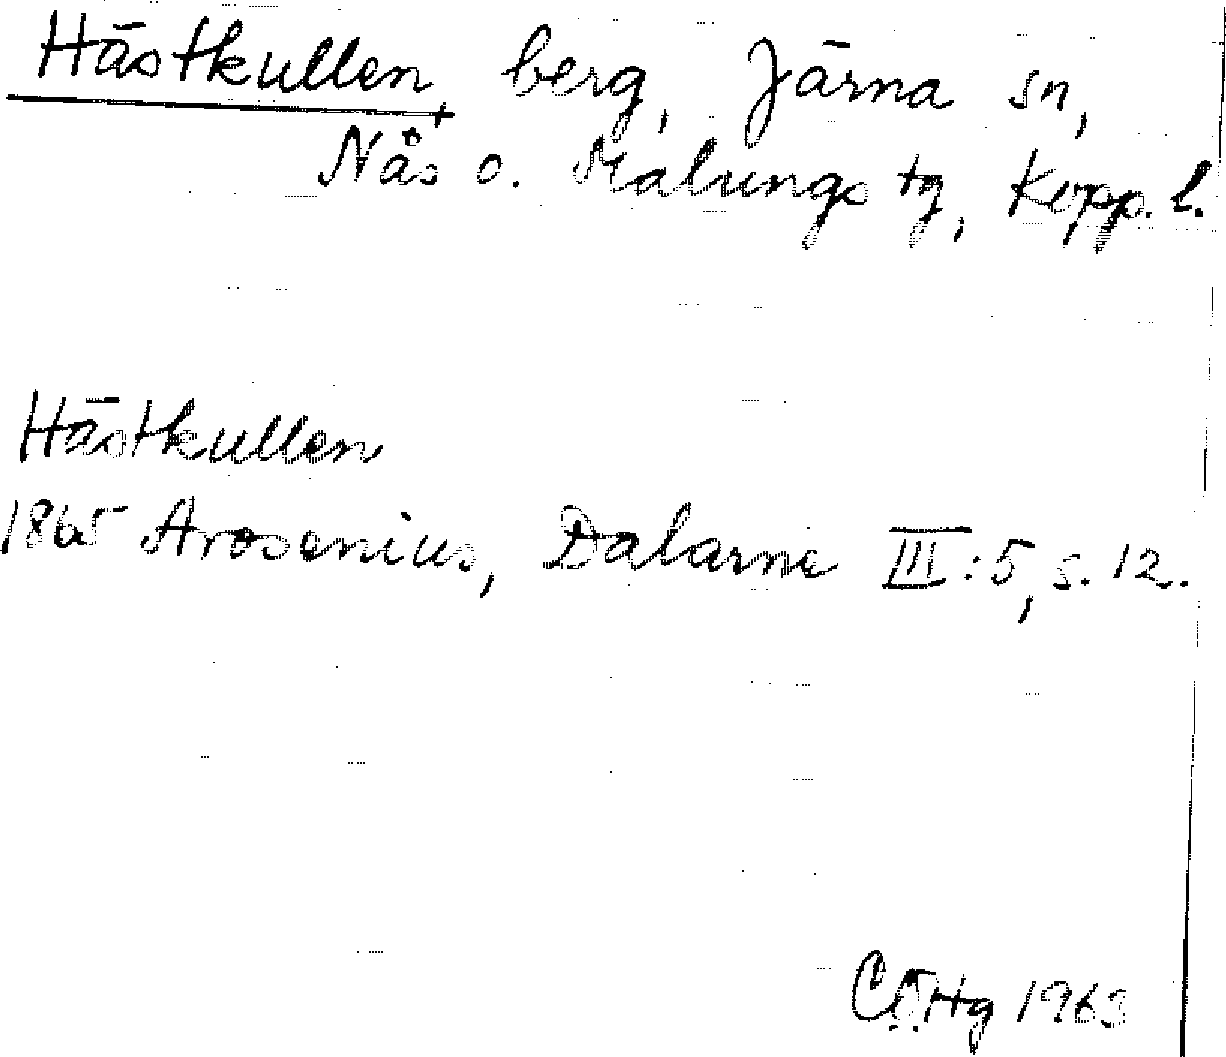 Hästkullen, berg, Järna sn,
Nås o. Malungs tg, Kopp. l.
Hästkullen
1865 Arosenius, Dalarne III:5, s. 12.
1963